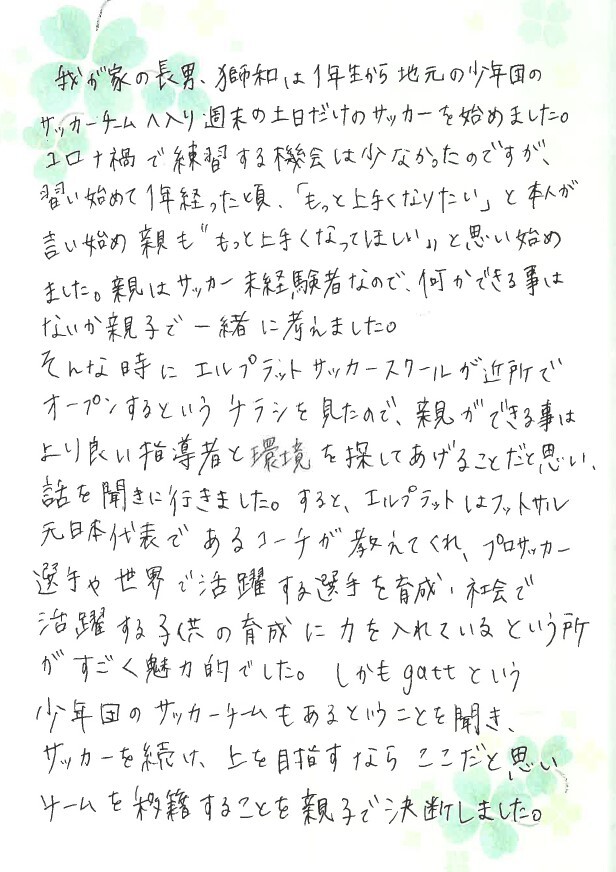 我が家の長男、獅和は1年生から地元の少年団の
サッカーチームへ入り週末の土日だけのサッカーを始めました。
コロナ禍で練習する機会は少なかったのですが、
習い始めて1年経った頃、「もっと上手くなりたい」と本人が
言い始め親も“もっと上手くなってほしい”と思い始め
ました。親はサッカー未経験者なので、何かできる事は
ないか親子で一緒に考えました。
そんな時にエルプラットサッカースクールが近所で
オープンするというチラシを見たので、親ができる事は
より良い指導者と環境を探してあげることだと思い、
話を聞きに行きました。すると、エルプラットはフットサル
元日本代表であるコーチが教えてくれ、プロサッカー
選手や世界で活躍する選手を育成・社会で
活躍する子供の育成に力を入れているという所
がすごく魅力的でした。しかもgattという
少年団のサッカーチームもあるということを聞き、
サッカーを続け、上を目指すならここだと思い
チームを移籍することを親子で決断しました。